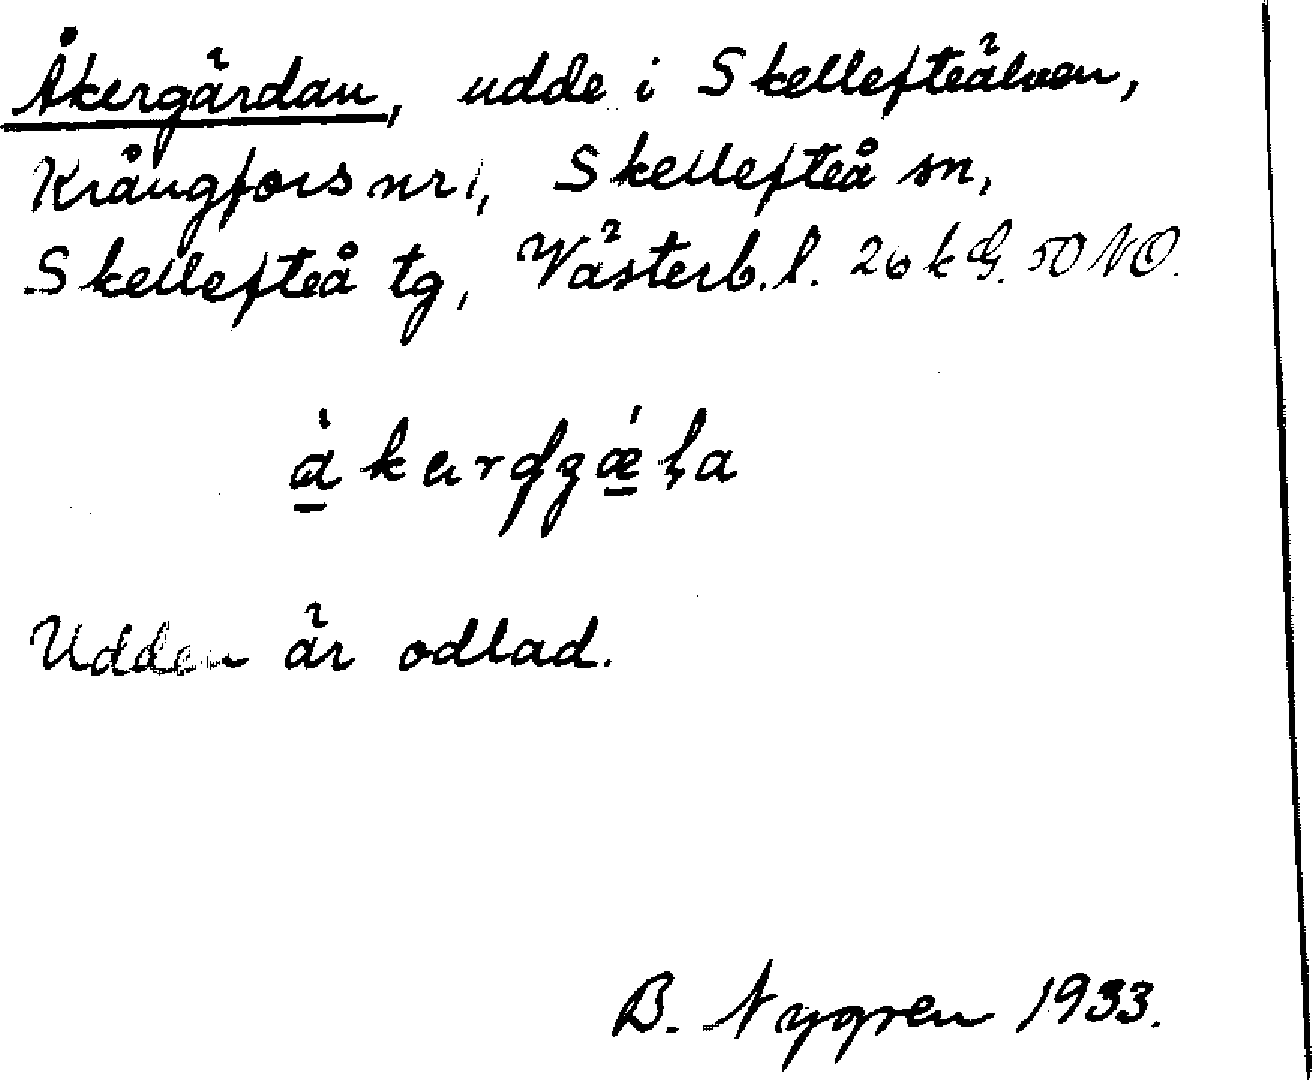 Åkergärdan, udde i Skellefteälven,
Krångfors nr 1, Skellefteå sn,
Skellefteå tg, Västerb. l. 26 k G. 50 NO.
Udden är odlad.
B. Nygren 1933.